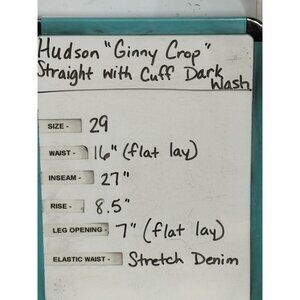 Hudson "Ginny Crop"
Straight with Cuff Dark
Wash
SIZE - 29
WAIST - 16" (flat lay)
INSEAM - 27"
RISE - 8.5"
LEG OPENING - 7" (flat lay)
ELASTIC WAIST - Stretch Denim